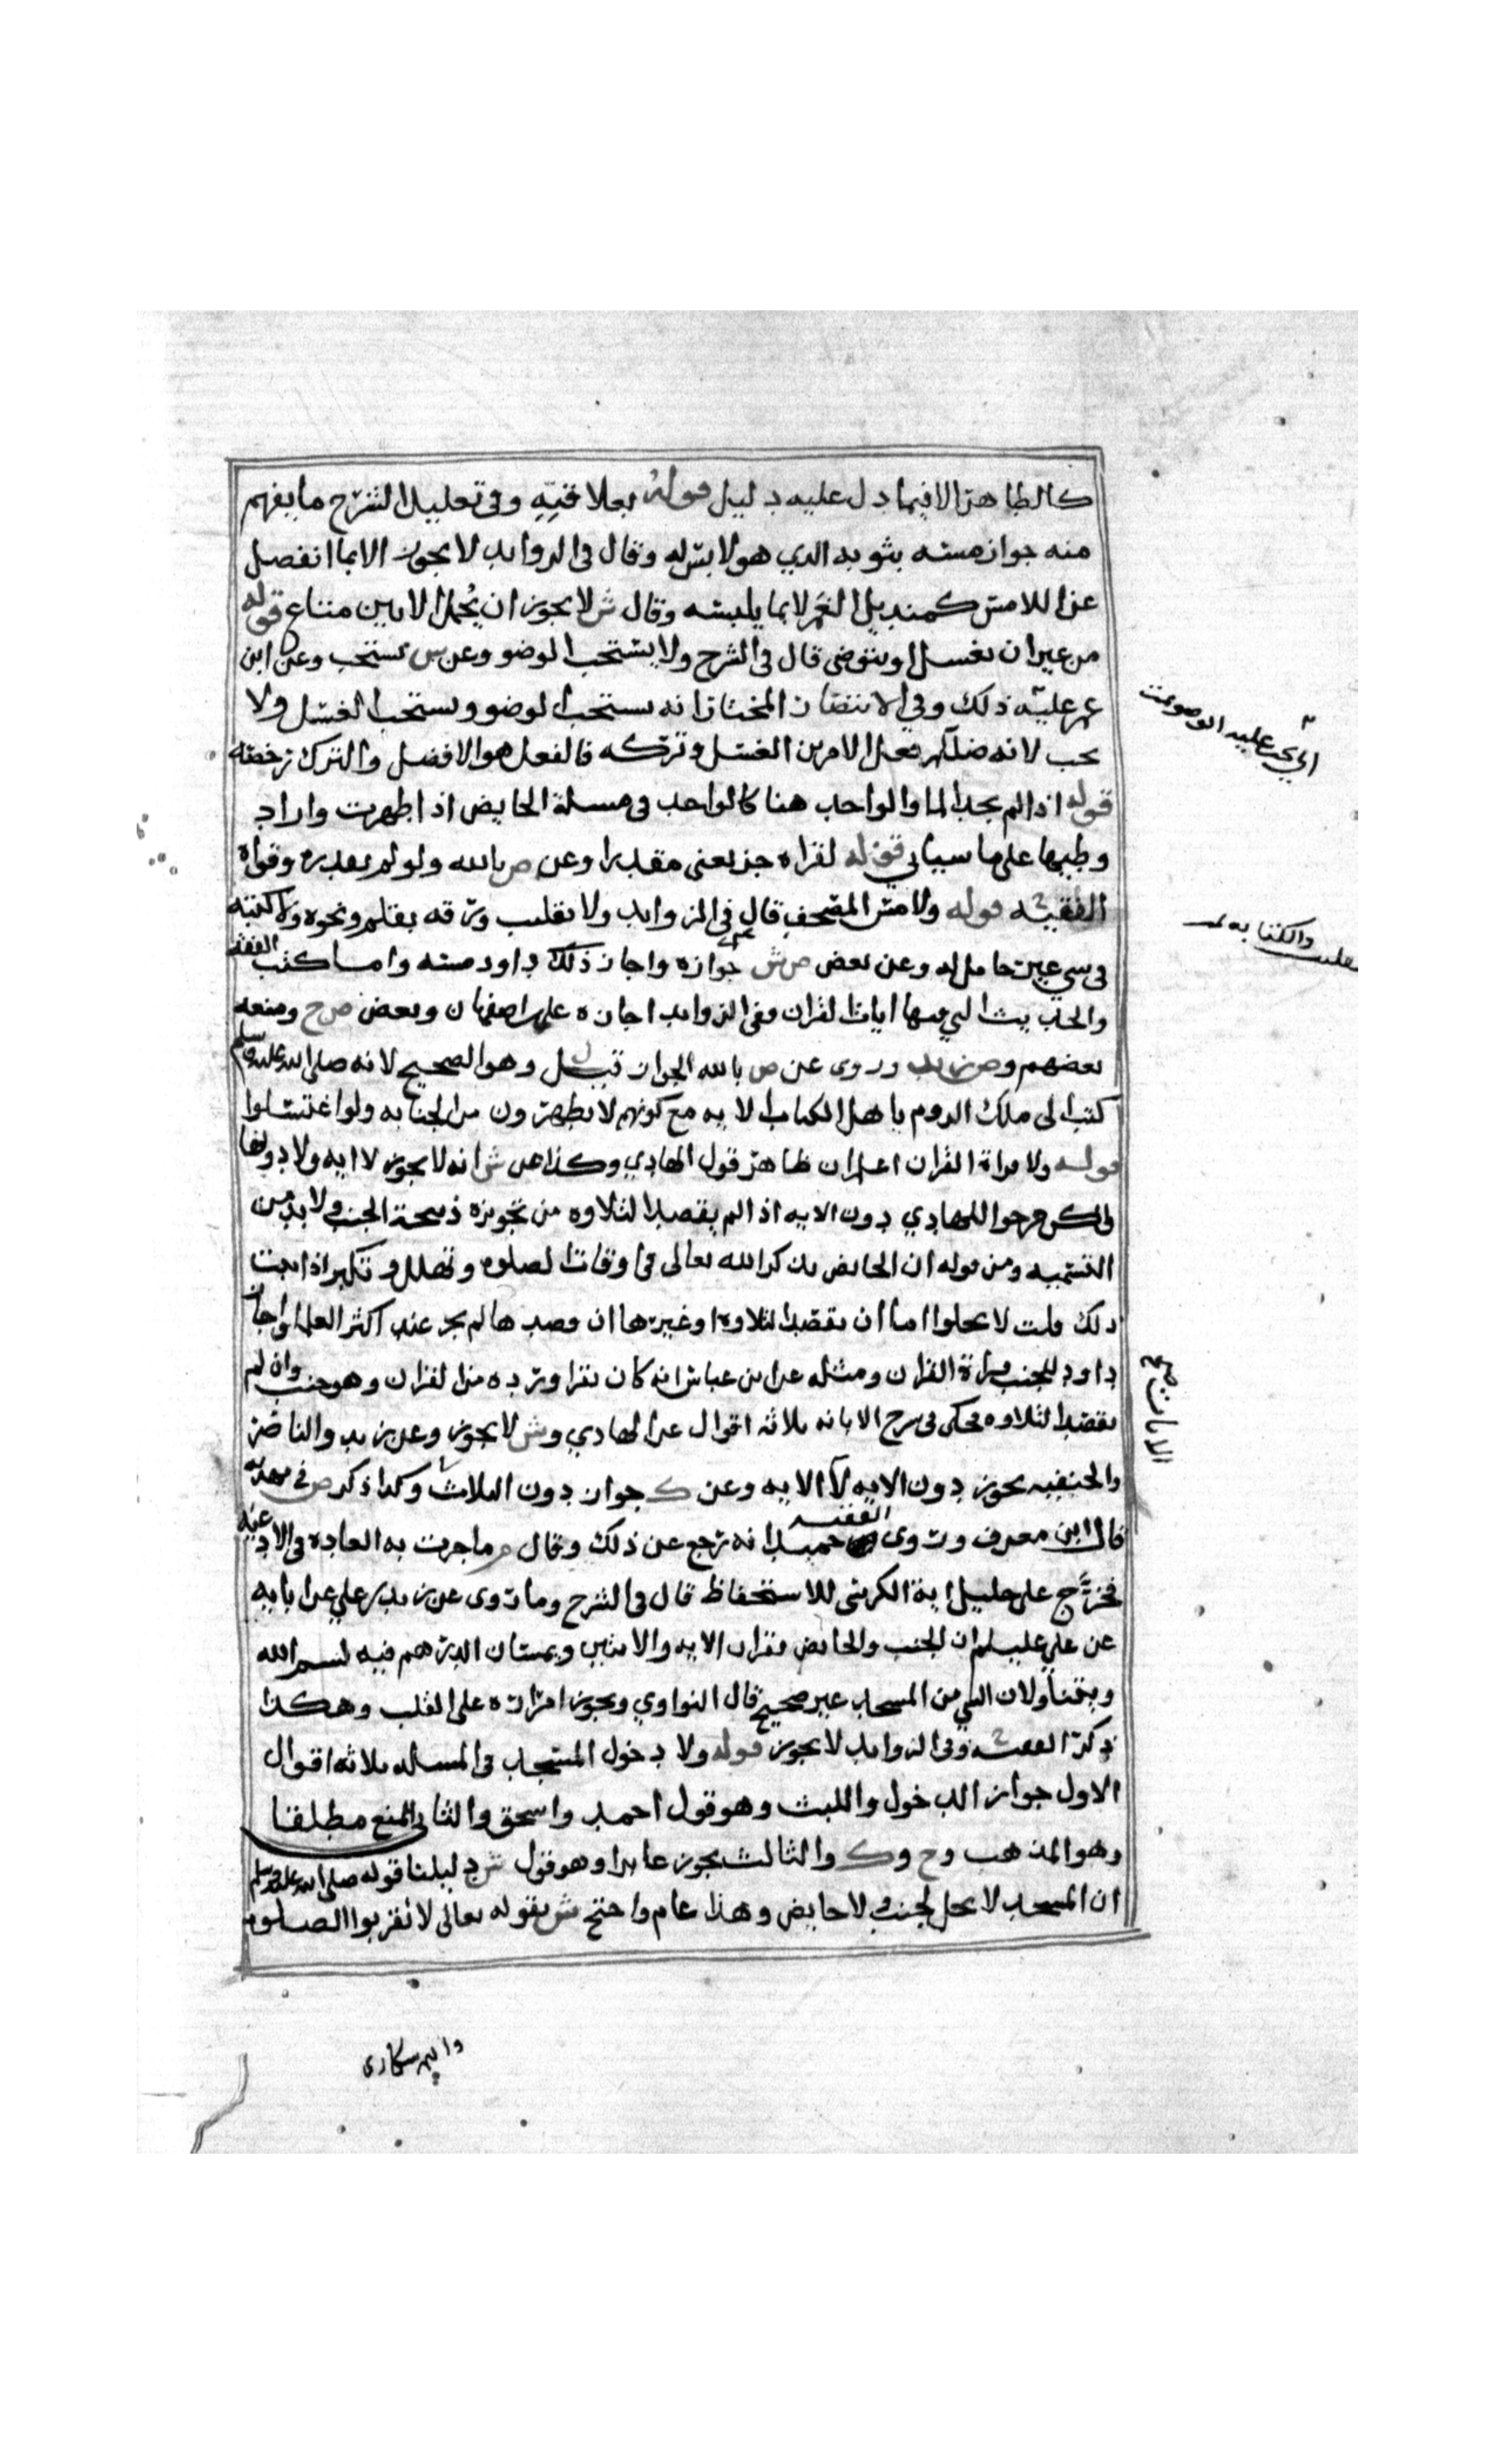 كالطاهر الا فيما دل عليه دليل قوله بعلاقته وفي تعليل الشرح ما يفهم
منه جواز مسه بثوبه الدي هو لابس له وقال في الزوايد لا يجوز الا بما انفصل
عن اللامس كمنديل الغمر لا بما يلبسه وقال ش لا يجوز ان يحمل الا بين متاع قوله
من غير ان يغسل او يتوضى قال في الشرح ولا يستحب الوضو وعن س يستحب وعن ابن
عمر عليه ذلك وفي الانتصار المختار انه يستحب الوضو ويستحب الغسل ولا
يجب لانه صلى فعل الامرين الغسل وتركه فالفعل هو الافضل والترك رخصه
قوله اذا لم يجد الما والواحد هنا كالواحد في مسلة الحايض اذا طهرت واراد
وطيها على ما سياتي قوله لقراه جز يعنى مقدرا وعن ص بالله ولو لم يقدره وقواه
الفقيه قوله ولا مس المصحف قال في الزوايد ولا يقلب ورقه بقلم ونحوه ولا كتبته
في شي غير حامل له وعن بعض صش جوازه واجاز ذلك داود مسه واما كتب الفقه
والحديث التي فيها ايات القران ففي الزوايد اجازه علما اصفهان وبعض صح ومنعه
بعضهم وص زيد وروى عن ص بالله الجواز قيل وهو الصحيح لانه صلى الله عليه وسلم
كتب الى ملك الروم يا هل الكتاب الايه مع كونهم لا يطهرون من الجنابه ولو اغتسلوا
قوله ولا قراة القران اعلم ان ظاهر قول الهادي وكذا عن ش انه لا يجوز لا ايه ولا دونها
لكن خرجوا للهادي دون الايه اذا لم يقصد التلاوه من تجويزه ذبيحة الجنب ولا بد من
التسميه ومن قوله ان الحايض تذكر الله تعالى في اوقات الصلوه وتهلل وتكبر اذا
ذلك قلت لا يخلوا اما ان يقصد التلاوه او غيرها ان قصدها لم يجز عند اكثر العلما واجاز
داود للجنب قراة القران ومثله عن ابن عباس انه كان يقرا ورده من القران وهو جنب وان لم
يقصد التلاوه فحكى في شرح الابانه ثلاثه اقوال عن الهادي وش لا يجوز وعن زيد والناصر
والحنفيه يجوز دون الايه لا الايه وعن ك جواز دون الثلاث وكذا ذكر ص في مهذبه
قال ابن معرف وروى الفقيه حميد انه رجع عن ذلك وقال م ما جرت به العاده في الادعيه
فخرج على حليل اية الكرسى للاستحفاظ قال في الشرح وما روى عن زيد بن علي عن ابايه
عن علي عليلم ان الجنب والحايض يقران الايه والايتين ويمسان الدرهم فيه بسم الله
ويتناولان الشي من المسجد غير صحيح قال النواوي ويجوز امراره على القلب وهكذا
ذكر الفقيه وفي الزوايد لا يجوز قوله ولا دخول المسجد في المسله ثلاثه اقوال
الاول جواز الدخول واللبث وهو قول احمد واسحق والثاني المنع مطلقا
وهو المذهب وح وك والثالث يجوز عابرا وهو قول ش دليلنا قوله صلى الله عليه وسلم
ان المسجد لا يحل لجنب ولا حايض وهذا عام واحتج ش بقوله تعالى لا تقربوا الصلوه
وانتم سكارى
اي يجب عليه الوضو
والكتابه
الايات